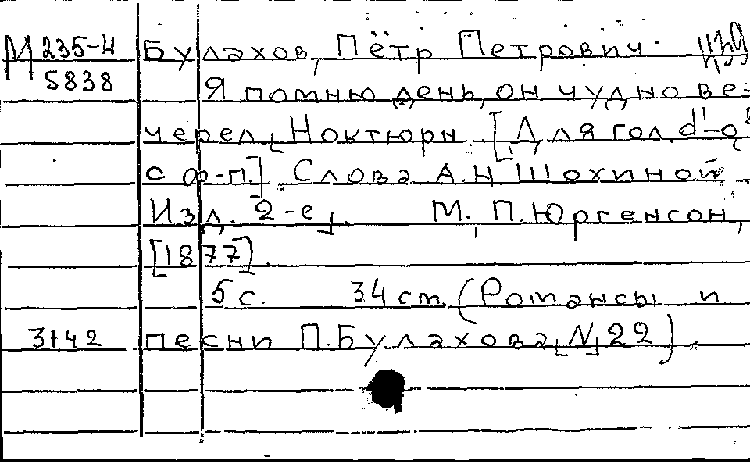 М 235-4 Булахов, Пётр Петрович.
5838 Я помню день, он чудно ве-
черел, Ноктюрн. [Для гол. d¹-g²
с ф-п.] Слова А.Н. Шохиной
Изд. 2-е. М., П. Юргенсон,
[1877].
5 с. 34 cm. (Романсы и
3142 песни П. Булахова, № 22).